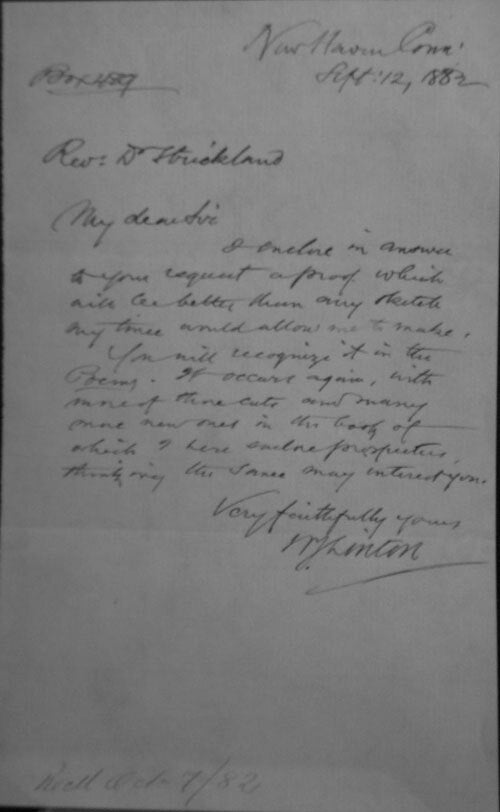 New Haven Conn:
Sept: 12, 1882
Box 489
Rev: Dr Strickland
My dear Sir
I enclose in answer
to your request a proof which
will be better than any sketch
my time would allow me to make.
You will recognize it in the
Poems. It occurs again, with
more of those cuts and many
more new ones in the book of
which I here enclose prospectus,
thinking the same may interest you.
Very faithfully yours
W J Linton
Rec'd Oct 7/82